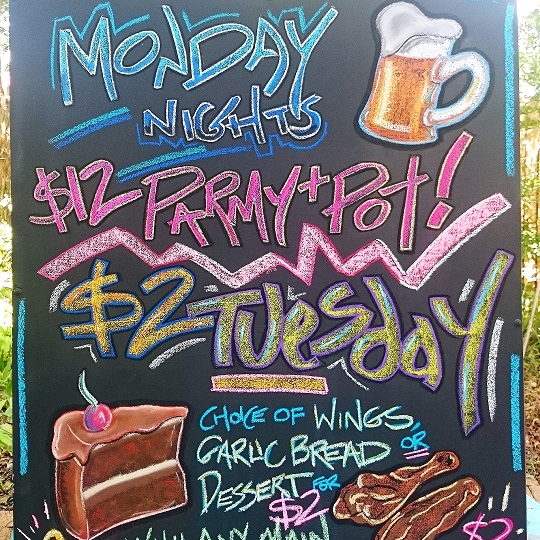 MONDAY
NIGHTS
$12 PARMY + POT!
$2 TUESDAY
CHOICE OF WINGS,
GARLIC BREAD OR
DESSERT FOR
$2
ANY MAIN
$2